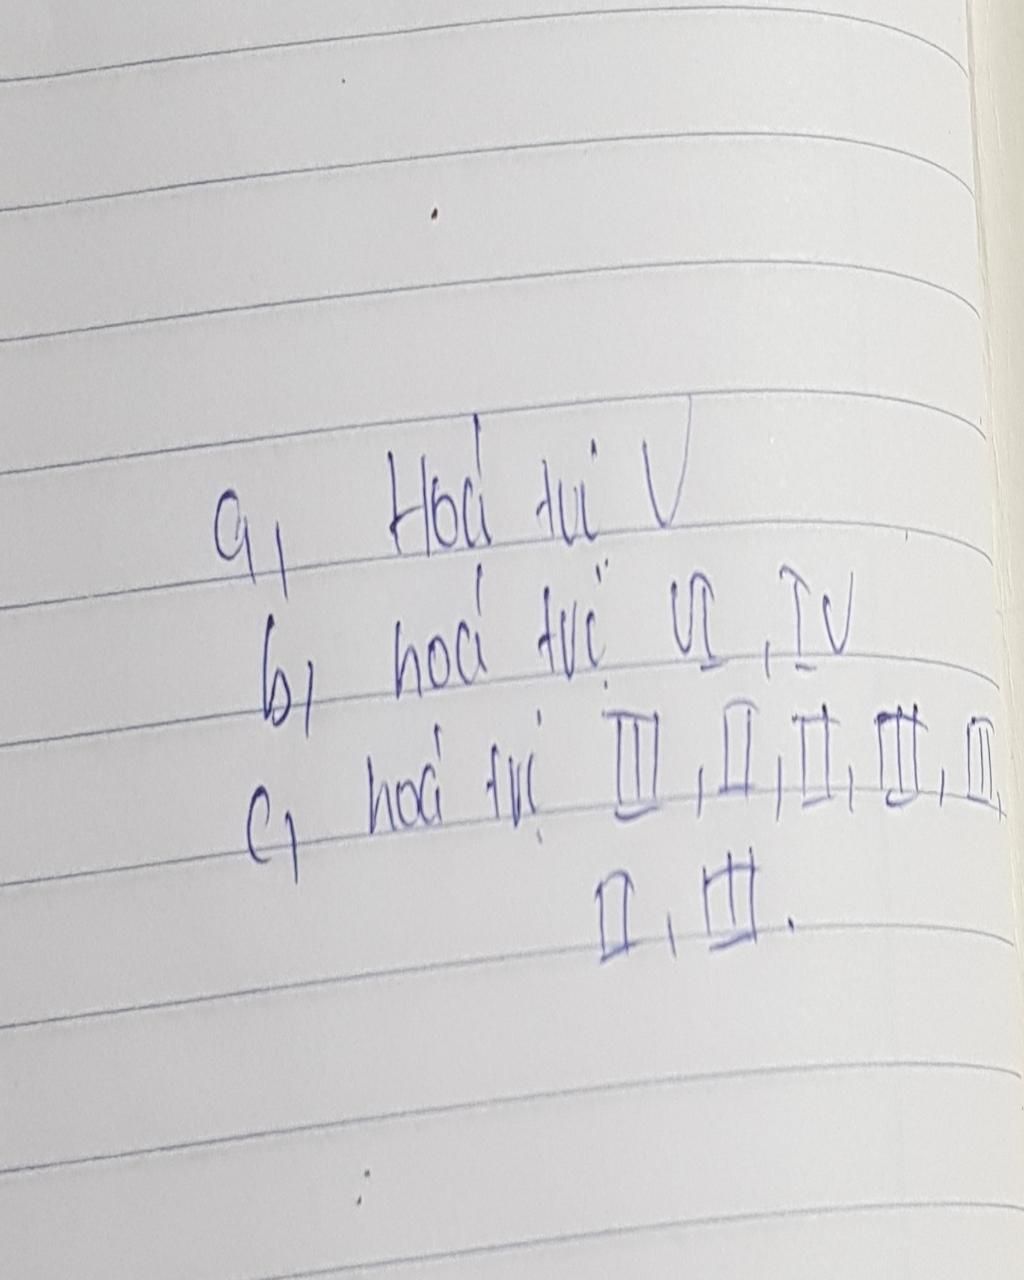 a, Hoá tui V
b, hoá tvị VI, IV
c, hoá tvị III, II, II, III, II,
II, III.